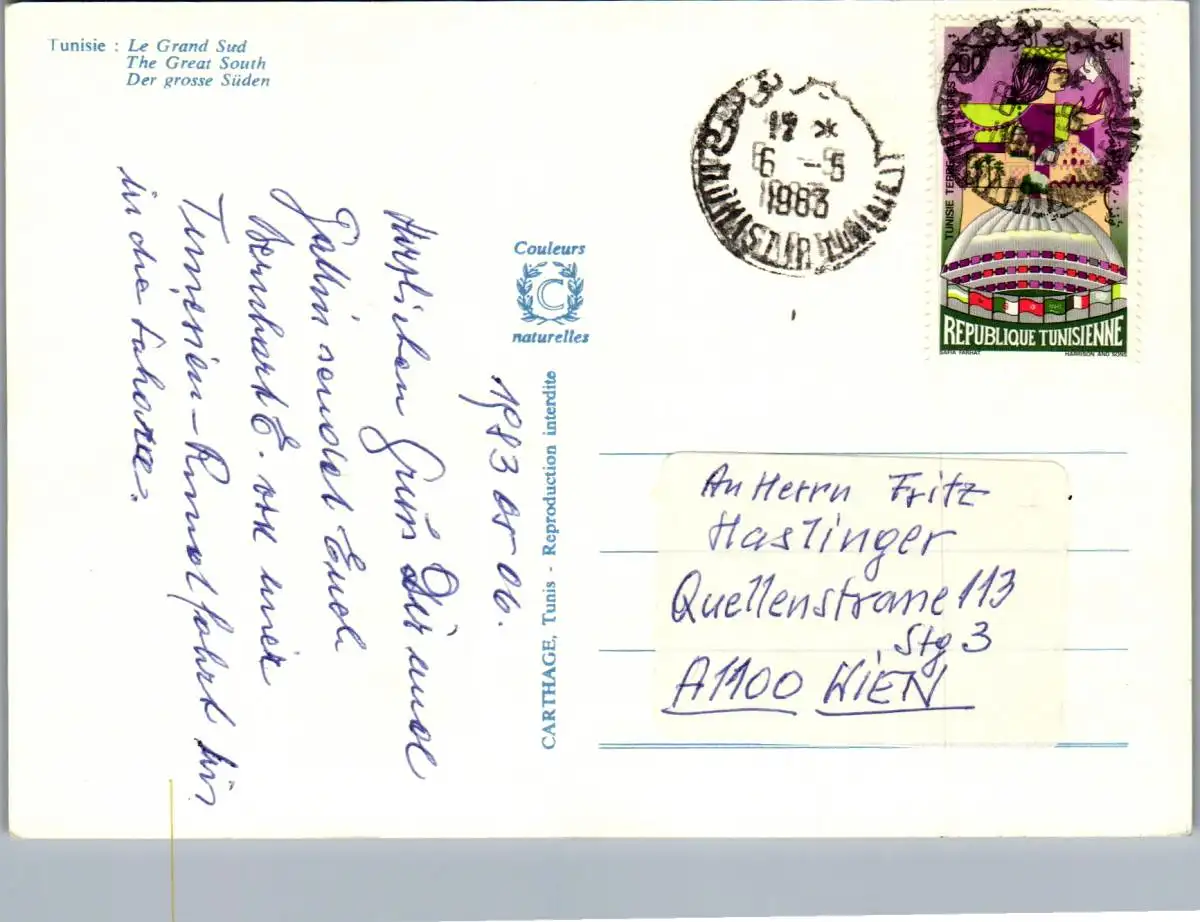 Tunisie : Le Grand Sud
The Great South
Der grosse Süden
1983 05 06.
Herzlichen Gruß Dir und
Gattin sendet Euch
Bernhard E. von einer
Tunesien-Rundfahrt bis
in die Sahara.
Couleurs
C
naturelles
CARTHAGE, Tunis - Reproduction interdite
17 *
6 - 5
1983
MONASTIR
200
REPUBLIQUE TUNISIENNE
SAFIA FARHAT HARRISON AND SONS
An Herrn Fritz
Haslinger
Quellenstrasse 113
Stg 3
A1100 WIEN